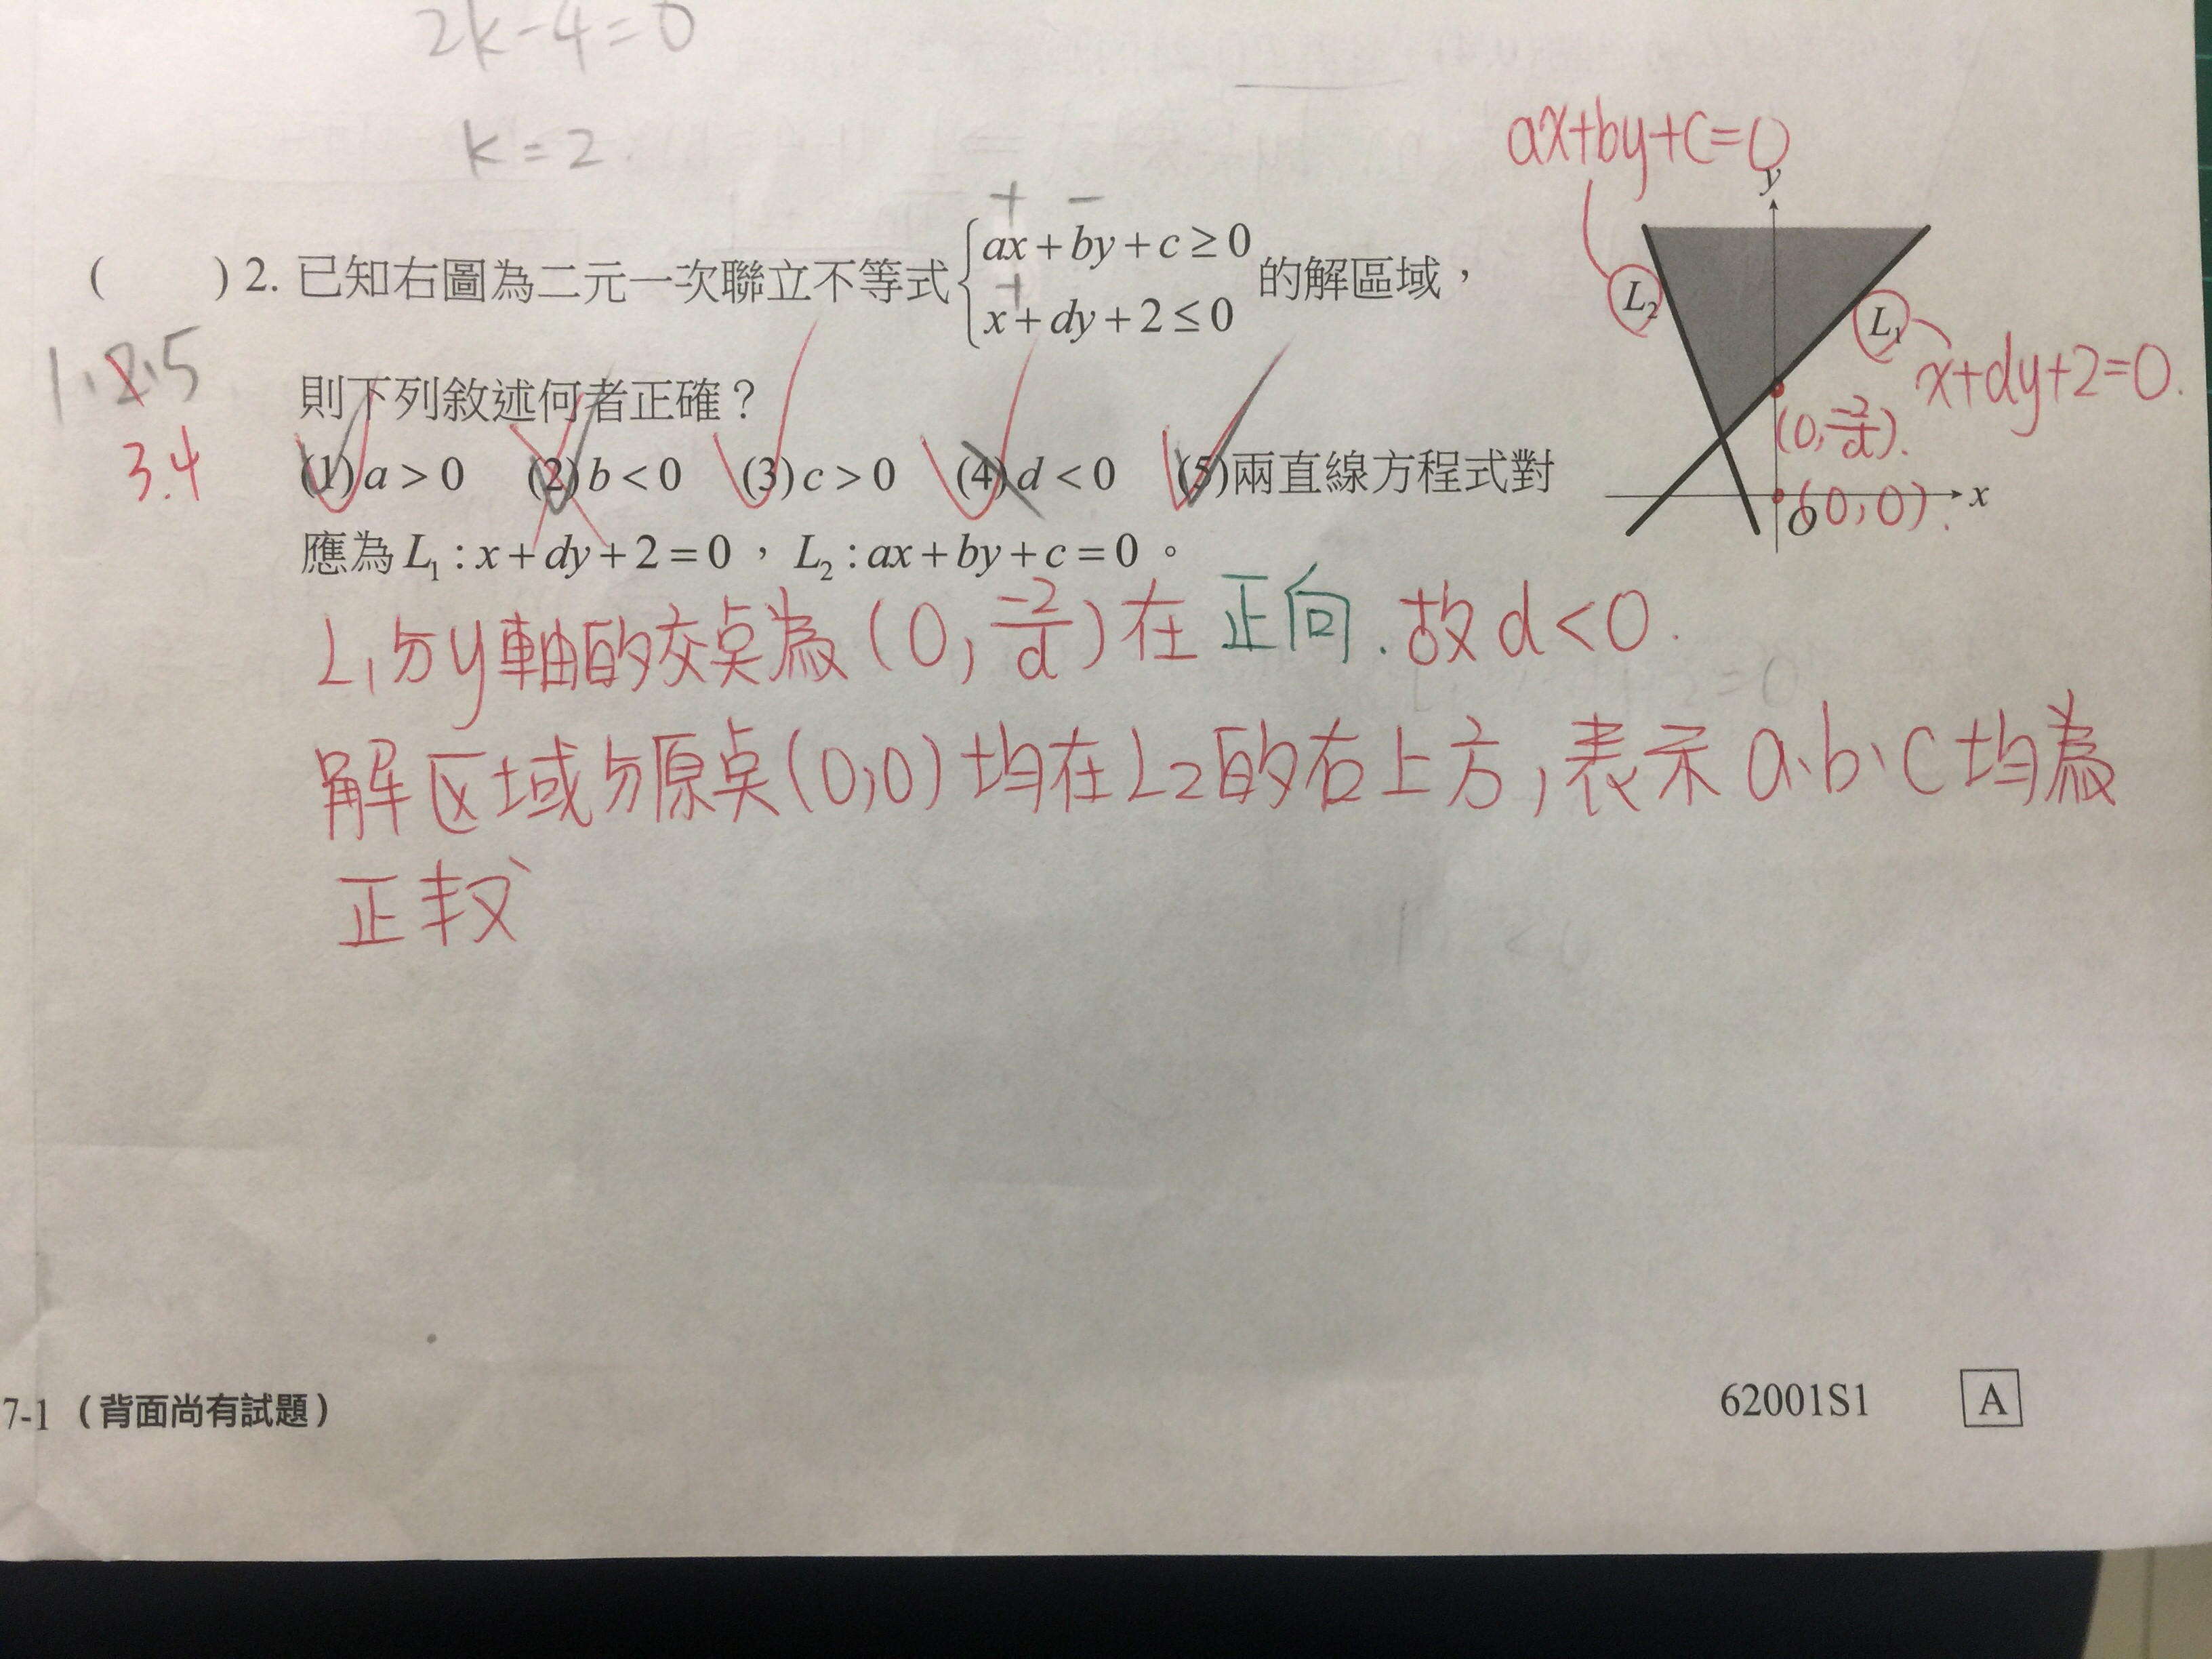 2k-4=0
k=2
ax+by+c=0
y
+ −
( ) 2. 已知右圖為二元一次聯立不等式 { ax + by + c ≥ 0 的解區域，
+
x + dy + 2 ≤ 0
L₂
L₁
x+dy+2=0.
1.2.5
3.4
則下列敘述何者正確？
(0, -2/d).
(1) a > 0 (2) b < 0 (3) c > 0 (4) d < 0 (5)兩直線方程式對
x
O (0,0).
應為 L₁ : x + dy + 2 = 0 ， L₂ : ax + by + c = 0 。
L₁与y軸的交点為(0, -2/d)在正向.故d<0.
解区域与原点(0,0)均在L2的右上方,表示a、b、c均為
正数
7-1 （背面尚有試題）
62001S1
A